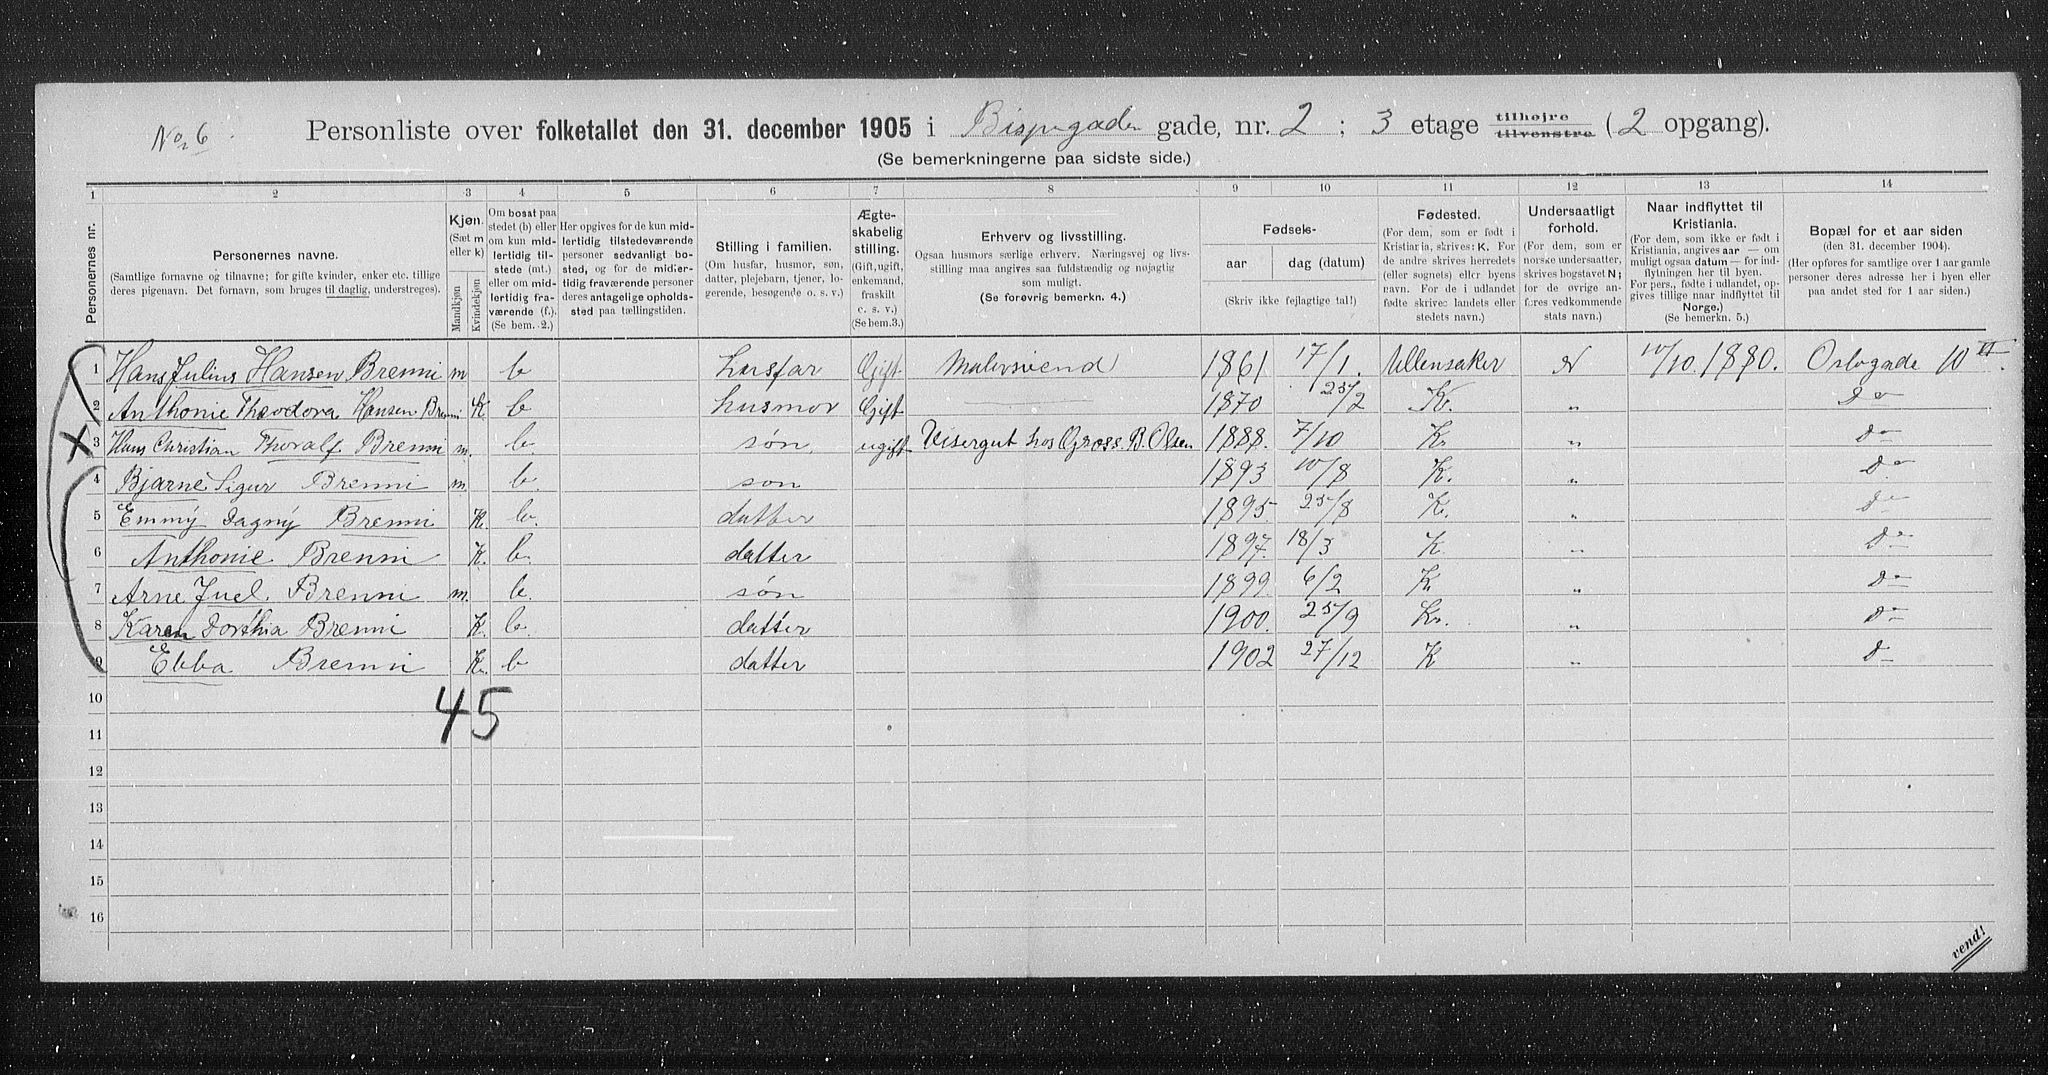 No. 6 Personliste over folketallet den 31. december 1905 i Bispegaden gade, nr. 2 ; 3 etage tilhøjre tilvenstre (2 opgang).
(Se bemerkningerne paa sidste side.)
1 2 3 4 5 6 7 8 9 10 11 12 13 14
Personernes nr.
Personernes navne.
(Samtlige fornavne og tilnavne; for gifte kvinder, enker etc. tillige
deres pigenavn. Det fornavn, som bruges til daglig, understreges).
Kjøn.
(Sæt m
eller k)
Mandkjøn
Kvindekjøn
Om bosat paa
stedet (b) eller
om kun mid-
lertidig til-
stede (mt.)
eller om mid-
lertidig fra-
værende (f.).
(Se bem. 2.)
Her opgives for de kun mid-
lertidig tilstedeværende
personer sedvanligt bo-
sted, og for de midler-
tidig fraværende personer
deres antagelige opholds-
sted paa tællingstiden.
Stilling i familien.
(Om husfar, husmor, søn,
datter, plejebarn, tjener, lo-
gerende, besøgende o. s. v.)
Ægte-
skabelig
stilling.
(Gift, ugift,
enkemand,
fraskilt
c. s. v.)
(Se bem.3.)
Erhverv og livsstilling.
Ogsaa husmors særlige erhverv. Næringsvej og livs-
stilling maa angives saa fuldstændig og nøjagtig
som muligt.
(Se forøvrig bemerkn. 4.)
Fødsels-
aar dag (datum)
(Skriv ikke fejlagtige tal!)
Fødested.
(For dem, som er født i
Kristiania, skrives: K. For
de andre skrives herredets
(eller sognets) eller byens
navn. For de i udlandet
fødte skrives landets eller
stedets navn.)
Undersaatligt
forhold.
(For dem, som er
norske undersaatter,
skrives bogstavet N;
for de øvrige an-
føres vedkommende
stats navn.)
Naar indflyttet til
Kristiania.
(For dem, som ikke er født i
Kristiania, angives aar — om
muligt ogsaa datum — for ind-
flytningen her til byen.
For pers., fødte i udlandet, op-
gives tillige naar indflyttet til
Norge.)
(Se bemerkn. 5.)
Bopæl for et aar siden
(den 31. december 1904).
(Her opføres for samtlige over 1 aar gamle
personer deres adresse her i byen eller
paa andet sted for 1 aar siden.)
1 Hans Julius Hansen Brenni m b husfar Gift Malersvend 1861 17/1. Ullensaker N 10/10. 1880. Oslogade 10 VI.
2 Anthonie Theodora Hansen Brenni K b husmor Gift 1870 25/2 K. „ Do
X 3 Hans Christian Thoralf Brenni m. b. søn, ugift Visergut hos Gross. B. Olsen 1888. 7/10 Kr „ Do
4 Bjarne Sigur Brenni m b. søn 1893 10/8 K. „ Do
5 Emmy Dagny Brenni K. b. datter 1895. 25/8 K. „ Do
6 Anthonie Brenni K. b. datter 1897. 18/3 K „ Do
7 Arne Juel Brenni m. b. søn 1899. 6/2 K „ Do
8 Karen Dorthia Brenni K. b. datter 1900. 25/9 Kr. „ Do
9 Ebba Brenni K. b datter 1902 27/12 K „ Do
10 45
11
12
13
14
15
16
vend!